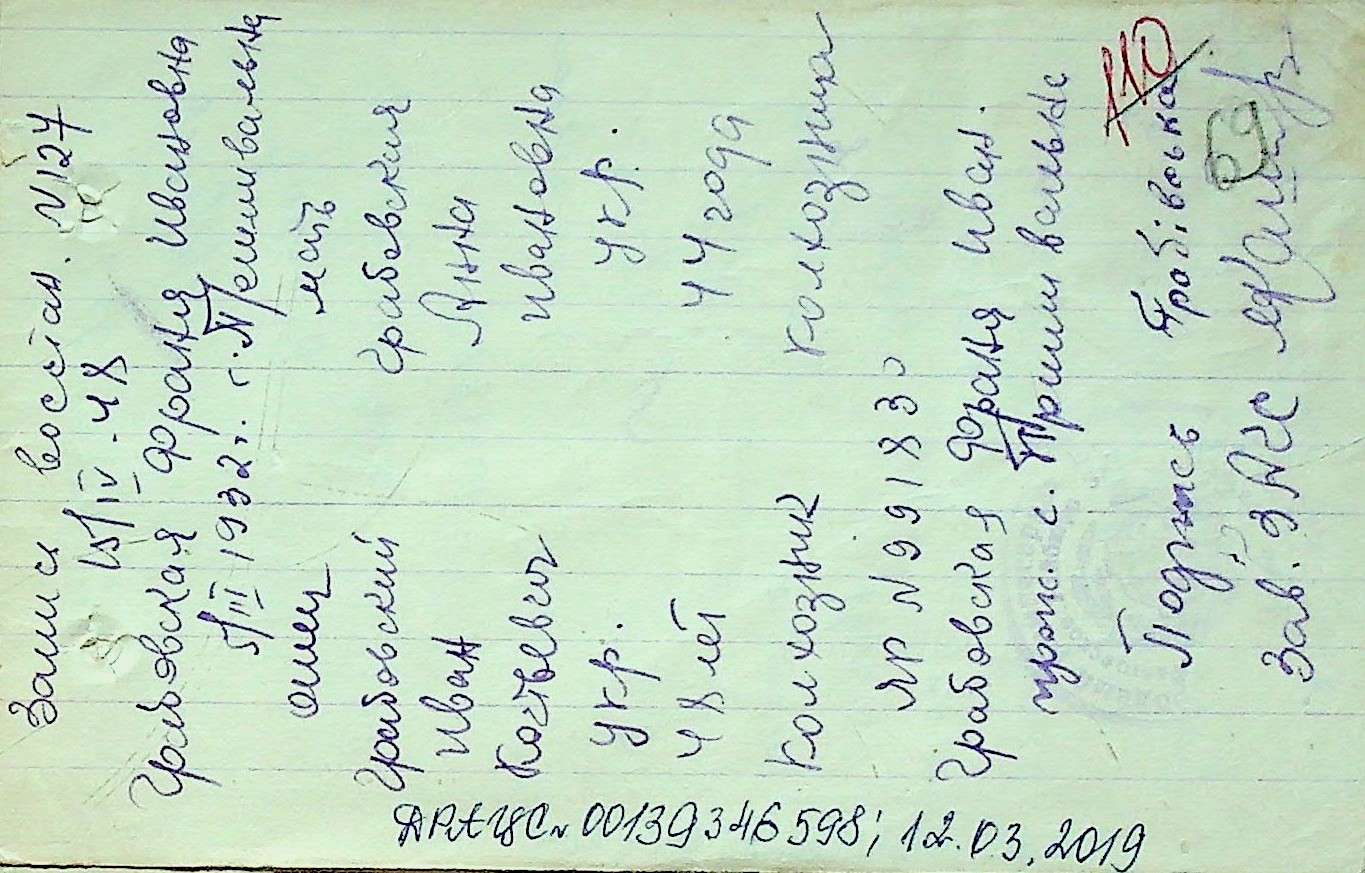 Запись восстан. N 127
15/IV-48
Грабовская Франя Ивановна
5/III 1932 г. г.
отец мать
Грабовский Грабовская
Иван Анна
Ивановна
Укр. Укр.
48 лет 44 года
Колхозник колхозница
ЯР N 991830
Грабовская Франя Иван.
прож. с.
Подпись Грабівська
Зав. ЗАГС
110
69
ДРАЦС 00139346598; 12.03.2019